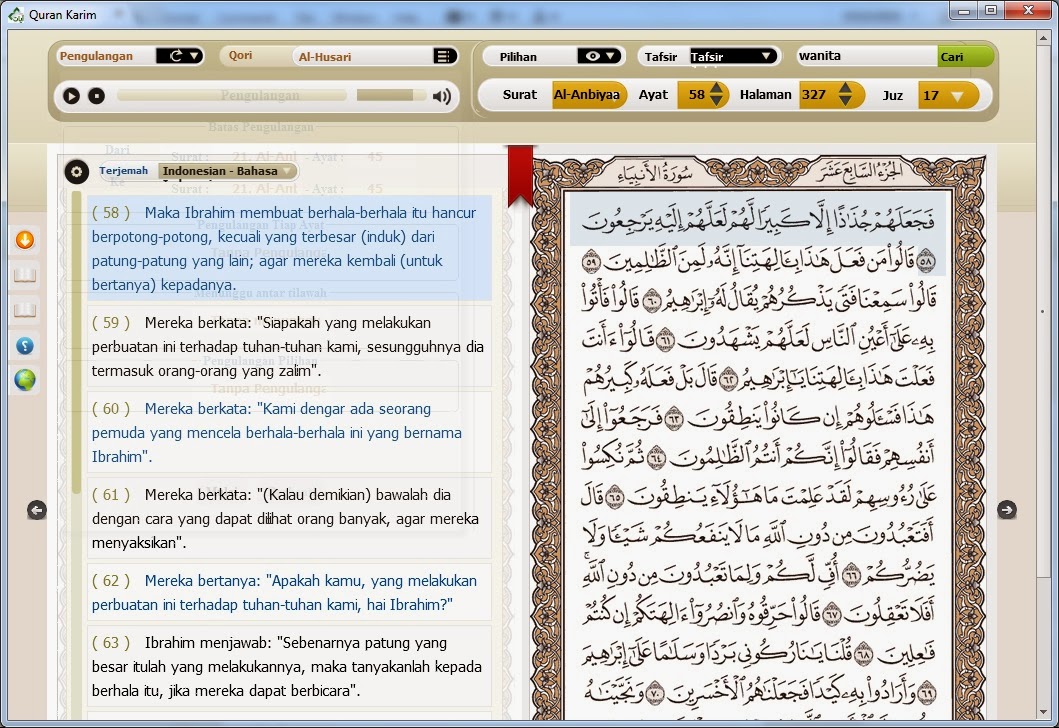 Quran Karim
Pengulangan
Qori
Al-Husari
Pengulangan
Pilihan
Tafsir
Tafsir
wanita
Cari
Surat
Al-Anbiyaa
Ayat
58
Halaman
327
Juz
17
Batas Pengulangan
Dari
Surat : 21. Al-Ant - Ayat : 45
Ke
Surat : 21. Al-Ant - Ayat : 45
Terjemah
Indonesian - Bahasa
( 58 ) Maka Ibrahim membuat berhala-berhala itu hancur
berpotong-potong, kecuali yang terbesar (induk) dari
patung-patung yang lain; agar mereka kembali (untuk
bertanya) kepadanya.
( 59 ) Mereka berkata: "Siapakah yang melakukan
perbuatan ini terhadap tuhan-tuhan kami, sesungguhnya dia
termasuk orang-orang yang zalim".
( 60 ) Mereka berkata: "Kami dengar ada seorang
pemuda yang mencela berhala-berhala ini yang bernama
Ibrahim".
( 61 ) Mereka berkata: "(Kalau demikian) bawalah dia
dengan cara yang dapat dilihat orang banyak, agar mereka
menyaksikan".
( 62 ) Mereka bertanya: "Apakah kamu, yang melakukan
perbuatan ini terhadap tuhan-tuhan kami, hai Ibrahim?"
( 63 ) Ibrahim menjawab: "Sebenarnya patung yang
besar itulah yang melakukannya, maka tanyakanlah kepada
berhala itu, jika mereka dapat berbicara".
Pengulangan Tiap Ayat
Menunggu antar tilawah
Pengulangan Pilihan
Tanpa Pengulanga
الجزء السابع عشر
سورة الأنبياء
فَجَعَلَهُمْ جُذَٰذًا إِلَّا كَبِيرًا لَّهُمْ لَعَلَّهُمْ إِلَيْهِ يَرْجِعُونَ
٥٨ قَالُوا۟ مَن فَعَلَ هَٰذَا بِـَٔالِهَتِنَآ إِنَّهُۥ لَمِنَ ٱلظَّٰلِمِينَ ٥٩
قَالُوا۟ سَمِعْنَا فَتًى يَذْكُرُهُمْ يُقَالُ لَهُۥٓ إِبْرَٰهِيمُ ٦٠ قَالُوا۟ فَأْتُوا۟
بِهِۦ عَلَىٰٓ أَعْيُنِ ٱلنَّاسِ لَعَلَّهُمْ يَشْهَدُونَ ٦١ قَالُوٓا۟ ءَأَنتَ
فَعَلْتَ هَٰذَا بِـَٔالِهَتِنَا يَٰٓإِبْرَٰهِيمُ ٦٢ قَالَ بَلْ فَعَلَهُۥ كَبِيرُهُمْ
هَٰذَا فَسْـَٔلُوهُمْ إِن كَانُوا۟ يَنطِقُونَ ٦٣ فَرَجَعُوٓا۟ إِلَىٰٓ
أَنفُسِهِمْ فَقَالُوٓا۟ إِنَّكُمْ أَنتُمُ ٱلظَّٰلِمُونَ ٦٤ ثُمَّ نُكِسُوا۟
عَلَىٰ رُءُوسِهِمْ لَقَدْ عَلِمْتَ مَا هَٰٓؤُلَآءِ يَنطِقُونَ ٦٥ قَالَ
أَفَتَعْبُدُونَ مِن دُونِ ٱللَّهِ مَا لَا يَنفَعُكُمْ شَيْـًٔا وَلَا
يَضُرُّكُمْ ٦٦ أُفٍّ لَّكُمْ وَلِمَا تَعْبُدُونَ مِن دُونِ ٱللَّهِ ۖ
أَفَلَا تَعْقِلُونَ ٦٧ قَالُوا۟ حَرِّقُوهُ وَٱنصُرُوٓا۟ ءَالِهَتَكُمْ إِن كُنتُمْ
فَٰعِلِينَ ٦٨ قُلْنَا يَٰنَارُ كُونِى بَرْدًا وَسَلَٰمًا عَلَىٰٓ إِبْرَٰهِيمَ
٦٩ وَأَرَادُوا۟ بِهِۦ كَيْدًا فَجَعَلْنَٰهُمُ ٱلْأَخْسَرِينَ ٧٠ وَنَجَّيْنَٰهُ